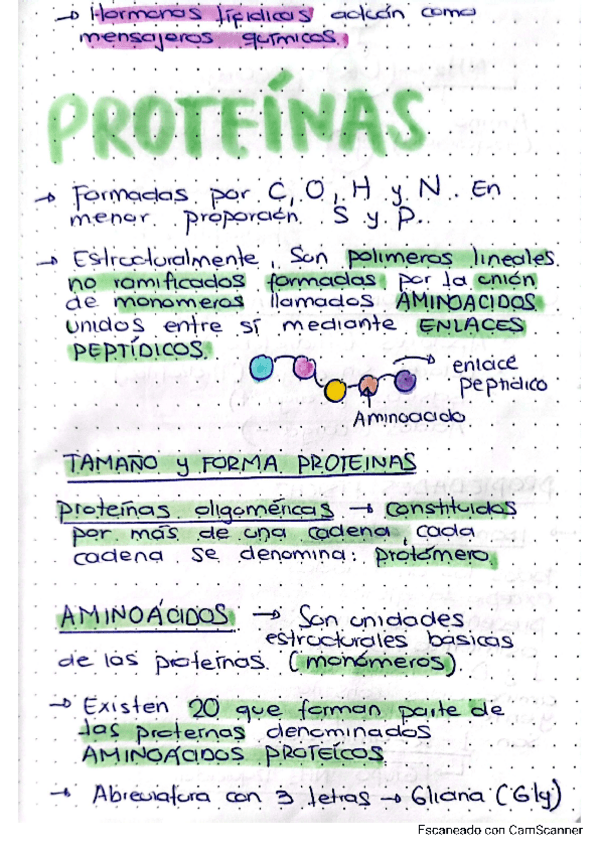 → Hormonas lipídicas actúan como
mensajeros químicos.
PROTEÍNAS
→ Formadas por C, O, H y N. En
menor proporción S y P.
→ Estructuralmente, Son polímeros lineales
no ramificados formadas por la unión
de monomeros llamados AMINOACIDOS
unidos entre sí mediante ENLACES
PEPTÍDICOS.
enlace
peptídico
Aminoacido
TAMAÑO y FORMA PROTEINAS
proteínas oligoméricas → constituidas
por más de una cadena, cada
cadena se denomina: protómero.
AMINOÁCIDOS: → Son unidades
estructurales básicas
de las proteínas. (monómeros)
→ Existen 20 que forman parte de
las proteínas denominados
AMINOÁCIDOS PROTEÍCOS
→ Abreviatura con 3 letras → Glicina (Gly)
Escaneado con CamScanner